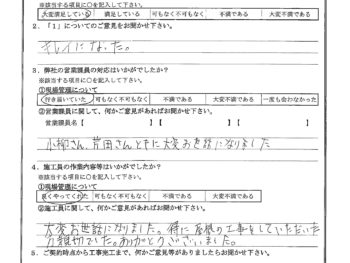 ※該当する項目に○を記入して下さい。
大変満足している 満足している 可もなく不可もなく 不満である 大変不満である
2.「1」についてのご意見をお聞かせ下さい。
キレイになった。
3. 弊社の営業課員の対応はいかがでしたか?
※該当する項目に○を記入して下さい。
①現場管理について
行き届いていた 可もなく不可もなく 不満である 大変不満である 一度も会わなかった
②営業課員に関して、何かご意見があればお聞かせ下さい。
営業課員名【 】【 】【 】
小柳さん、芹田さんともに大変お世話になりました
4. 施工員の作業内容等はいかがでしたか?
※該当する項目に○を記入して下さい。
①現場管理について
良くやってくれた 可もなく不可もなく 不満である 大変不満である
②施工員に関して、何かご意見があればお聞かせ下さい。
大変お世話になりました。特に屋根の工事をしていただいた
方親切でした。ありがとうございました。
5. ご契約時点から工事完工まで、何かご意見等がありましたらお聞かせ下さい。